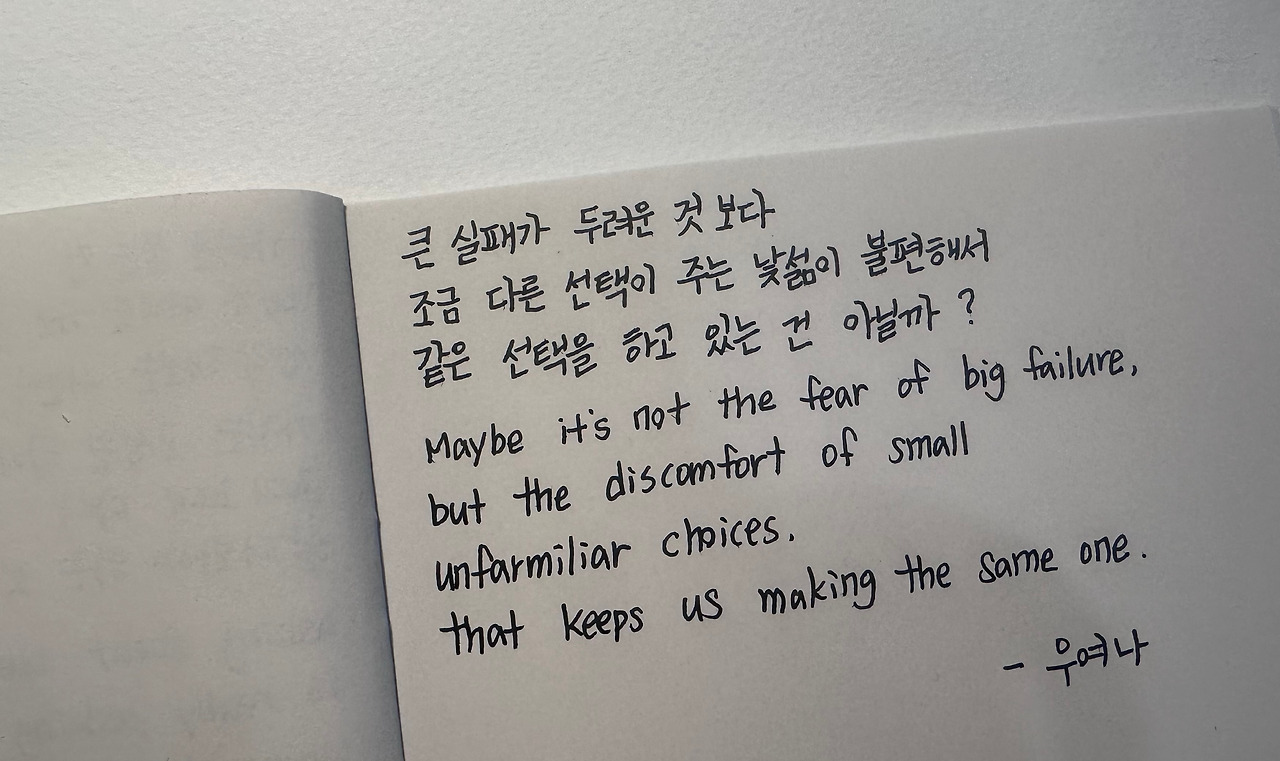 큰 실패가 두려운 것 보다
조금 다른 선택이 주는 낯섦이 불편해서
같은 선택을 하고 있는 건 아닐까?
Maybe it's not the fear of big failure,
but the discomfort of small
unfarmiliar choices.
that keeps us making the same one.
- 우여나